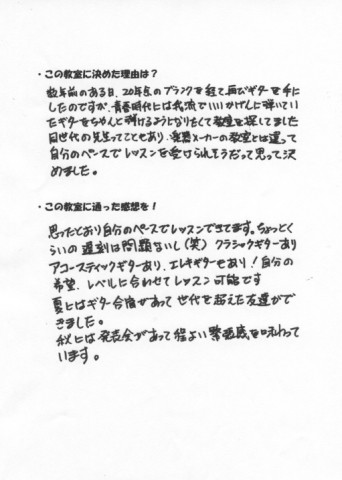 ・この教室に決めた理由は？
数年前のある日、20年余のブランクを経て、再びギターを手に
したのですが、青春時代には我流でいいかげんに弾いてい
たギターをちゃんと弾けるようになりたくて教室を探してました
同世代の先生ってこともあり、楽器メーカーの教室とは違って
自分のペースでレッスンを受けられそうだって思って決
めました。
・この教室に通った感想を！
思ったとおり自分のペースでレッスンできてます。ちょっとく
らいの遅刻は問題ないし（笑）クラシックギターあり
アコースティックギターあり、エレキギターもあり！自分の
希望、レベルに合わせてレッスン可能です
夏にはギター合宿があって世代を超えた友達がで
きました。
秋には発表会があって程よい緊張感を味わって
います。